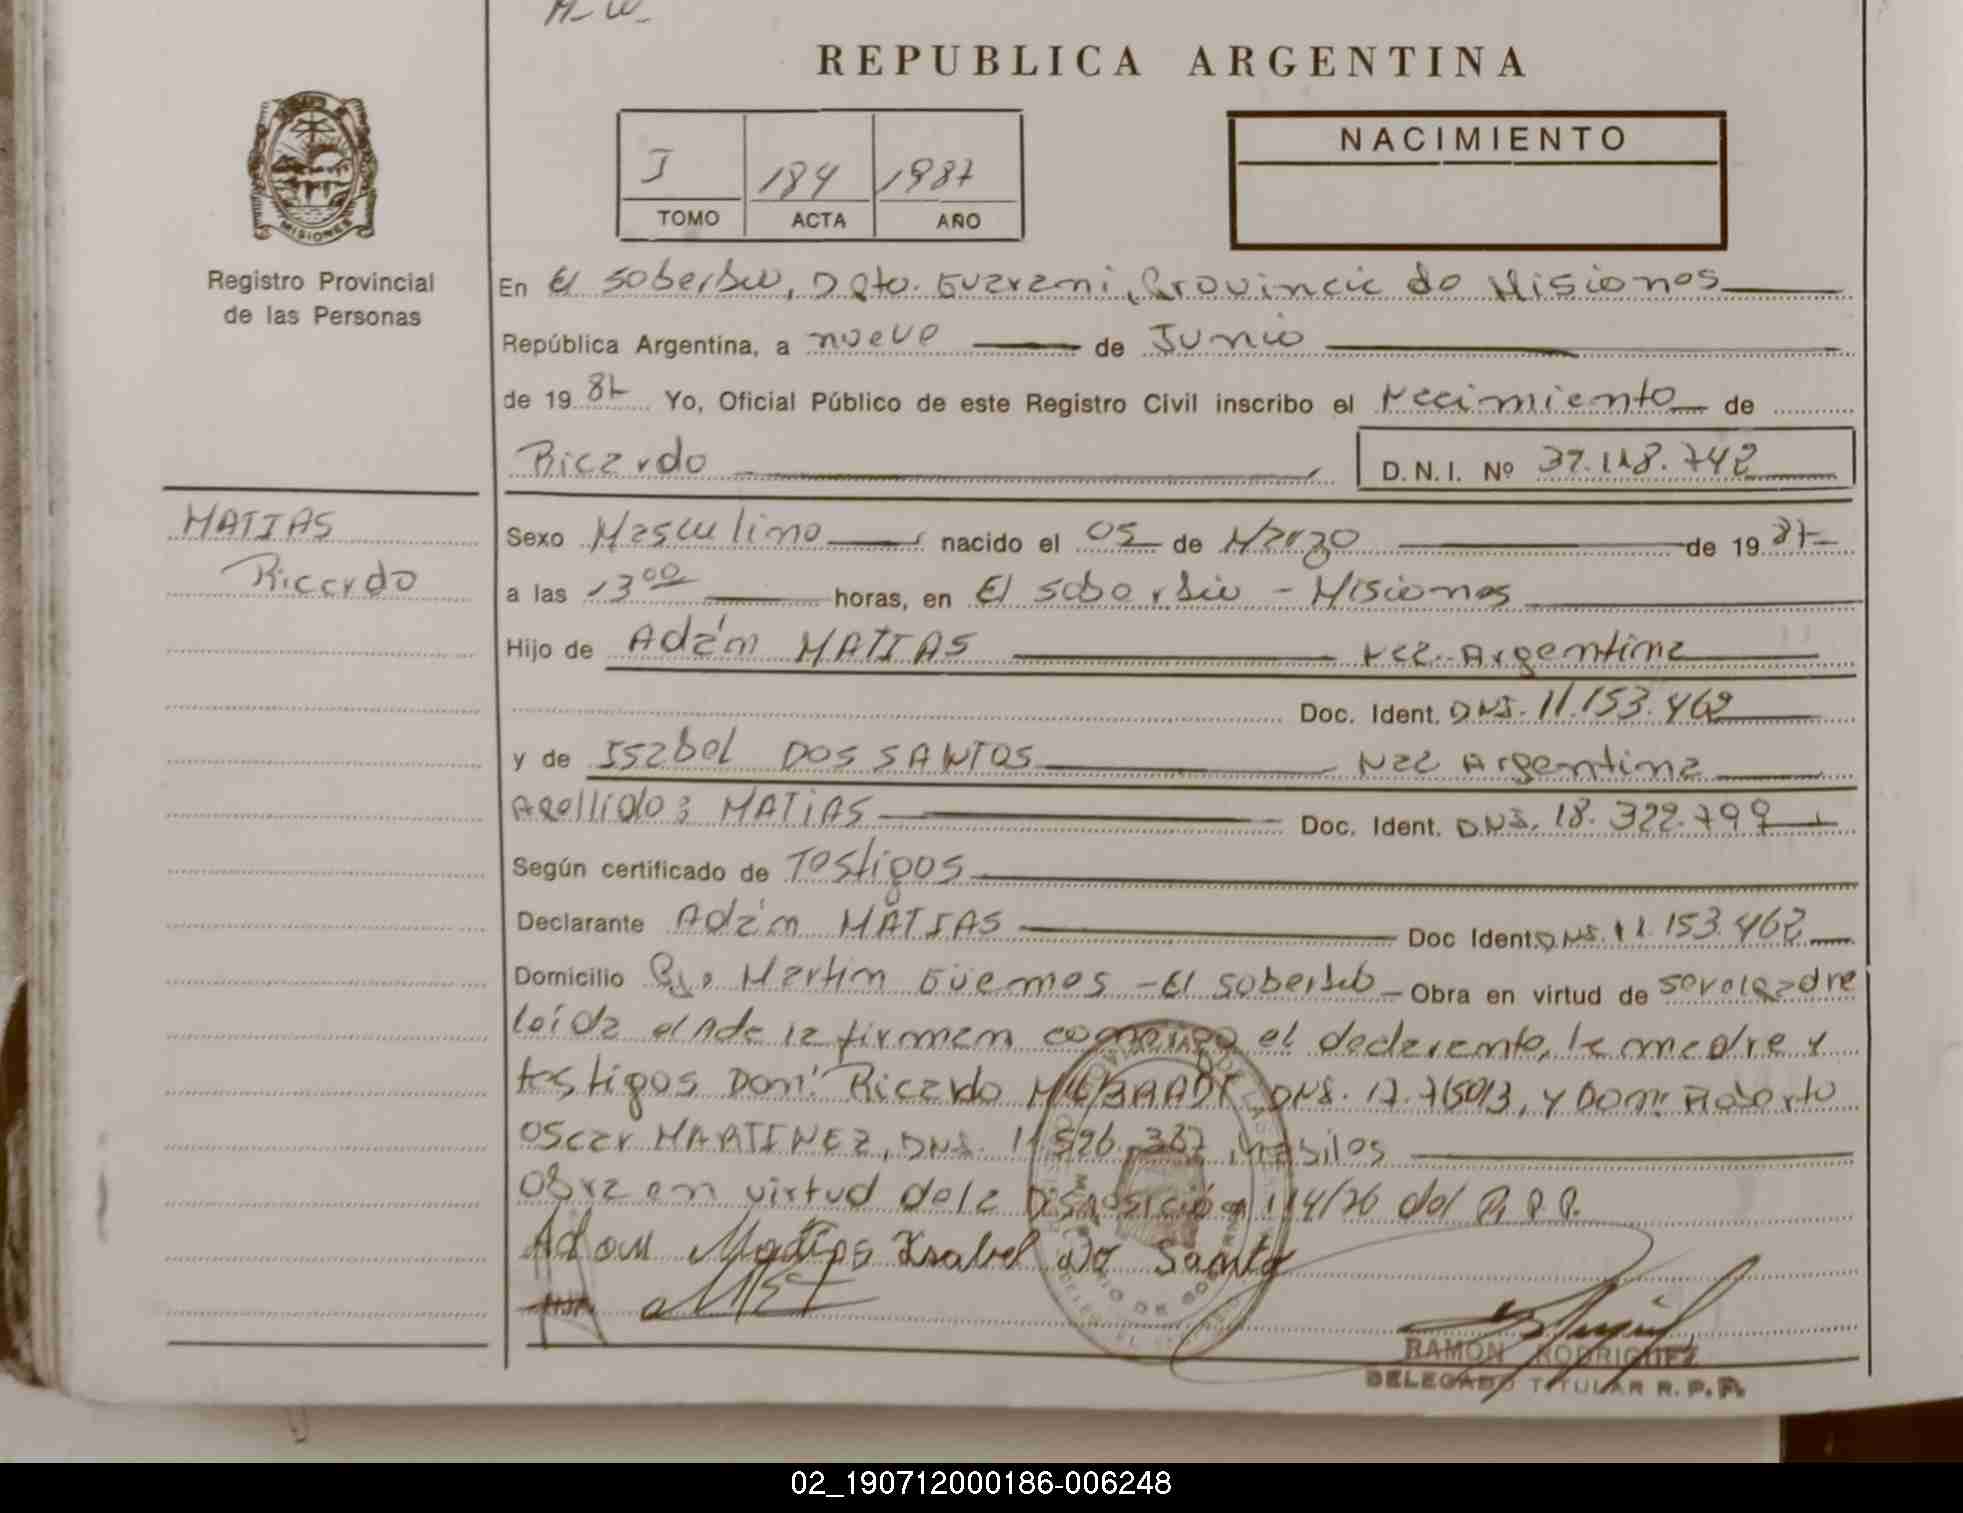 REPUBLICA ARGENTINA
NACIMIENTO
I 184 1987
TOMO ACTA AÑO
MISIONES
Registro Provincial
de las Personas
En El Soberbio, Dpto. Guarani, Provincia de Misiones
República Argentina, a nueve de Junio
de 19 87 Yo, Oficial Público de este Registro Civil inscribo el Nacimiento de
Ricardo D.N.I. Nº 32.118.742
MATIAS
Ricardo
Sexo Masculino nacido el 05 de Marzo de 19 87
a las 13 00 horas, en El Soberbio - Misiones
Hijo de Adán MATIAS Nac. Argentina
Doc. Ident. DNI. 11.153.462
y de Isabel DOS SANTOS Nac Argentina
Apellido: MATIAS Doc. Ident. DNI. 18.322.799
Según certificado de Testigos
Declarante Adán MATIAS Doc Ident. DNI. 11.153.462
Domicilio Bº Martin Güemes - El Soberbio - Obra en virtud de ser el padre
leida el Acta la firman conmigo el declarante, la madre y
testigos Don: Ricardo DNI. 17.715013, y Don: Roberto
Oscar MARTINEZ, DNI. 11.526.387 habiles
Obra en virtud de la Disposición 114/76 del R.P.P.
Adan Matias Isabel Do Santo
RAMON RODRIGUEZ
DELEGADO TITULAR R.P.P.
02_190712000186-006248